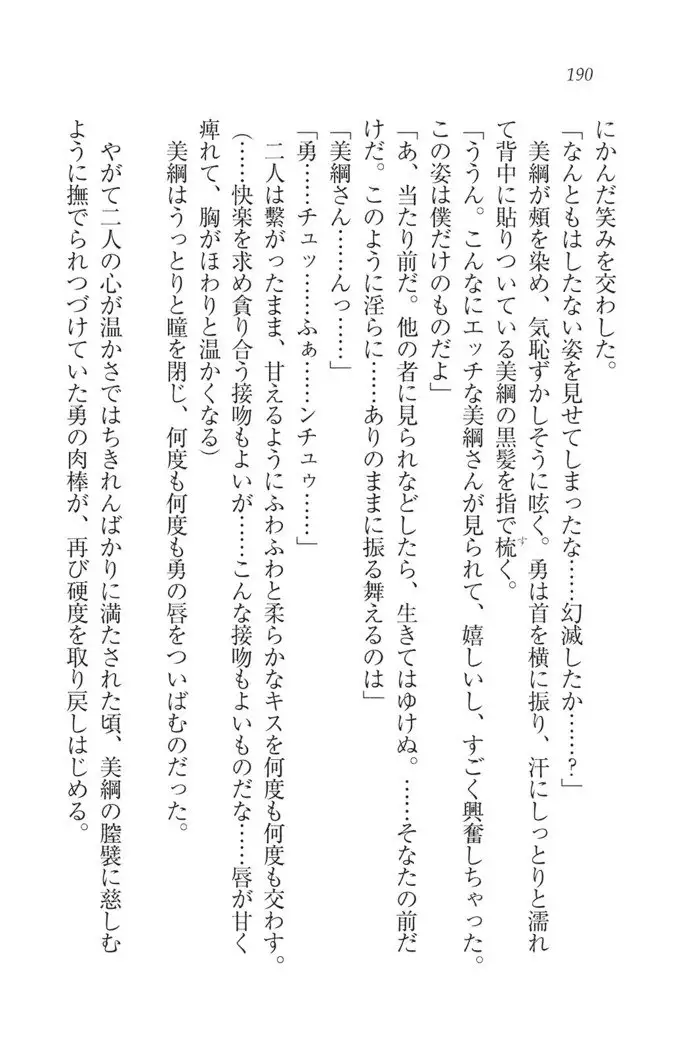 190
にかんだ笑みを交わした。
「なんともはしたない姿を見せてしまったな……幻滅したか……？」
美綱が頬を染め、気恥ずかしそうに呟く。勇は首を横に振り、汗にしっとりと濡れ
て背中に貼りついている美綱の黒髪を指で梳く。
す
「ううん。こんなにエッチな美綱さんが見られて、嬉しいし、すごく興奮しちゃった。
この姿は僕だけのものだよ」
「あ、当たり前だ。他の者に見られなどしたら、生きてはゆけぬ。……そなたの前だ
けだ。このように淫らに……ありのままに振る舞えるのは」
「美綱さん……んっ……」
「勇……チュッ……ふぁ……ンチュゥ……」
二人は繋がったまま、甘えるようにふわふわと柔らかなキスを何度も何度も交わす。
（……快楽を求め貪り合う接吻もよいが……こんな接吻もよいものだな……唇が甘く
痺れて、胸がほわりと温かくなる）
美綱はうっとりと瞳を閉じ、何度も何度も勇の唇をついばむのだった。
やがて二人の心が温かさではちきれんばかりに満たされた頃、美綱の膣襞に慈しむ
ように撫でられつづけていた勇の肉棒が、再び硬度を取り戻しはじめる。